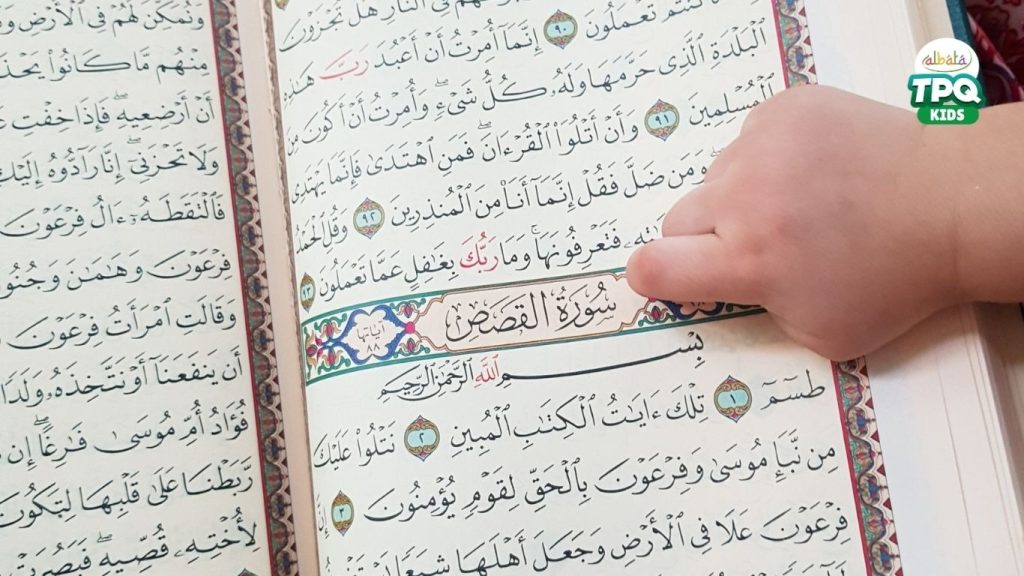 فِي ٱلنَّارِ هَلْ تُجْزَوْنَ
كُنتُمْ تَعْمَلُونَ ٩٠ إِنَّمَآ أُمِرْتُ أَنْ أَعْبُدَ رَبَّ هَٰذِهِ
ٱلْبَلْدَةِ ٱلَّذِي حَرَّمَهَا وَلَهُۥ كُلُّ شَيْءٍ ۖ وَأُمِرْتُ أَنْ أَكُونَ مِنَ
ٱلْمُسْلِمِينَ ٩١ وَأَنْ أَتْلُوَا۟ ٱلْقُرْءَانَ ۖ فَمَنِ ٱهْتَدَىٰ فَإِنَّمَا يَهْتَدِي
وَمَن ضَلَّ فَقُلْ إِنَّمَآ أَنَا۠ مِنَ ٱلْمُنذِرِينَ ٩٢ وَقُلِ ٱلْحَمْدُ
فَتَعْرِفُونَهَا ۚ وَمَا رَبُّكَ بِغَٰفِلٍ عَمَّا تَعْمَلُونَ ٩٣
سُورَةُ ٱلْقَصَصِ
بِسْمِ ٱللَّهِ ٱلرَّحْمَٰنِ ٱلرَّحِيمِ
طسٓمٓ ١ تِلْكَ ءَايَٰتُ ٱلْكِتَٰبِ ٱلْمُبِينِ ٢ نَتْلُوا۟ عَلَيْكَ
مِن نَّبَإِ مُوسَىٰ وَفِرْعَوْنَ بِٱلْحَقِّ لِقَوْمٍ يُؤْمِنُونَ ٣ إِنَّ
فِرْعَوْنَ عَلَا فِي ٱلْأَرْضِ وَجَعَلَ أَهْلَهَا شِيَعًا
وَنُمَكِّنَ لَهُمْ فِي ٱلْأَرْضِ
مِنْهُم مَّا كَانُوا۟
أَنْ أَرْضِعِيهِ ۖ فَإِذَا خِفْتِ
وَلَا تَحْزَنِيٓ ۖ إِنَّا رَآدُّوهُ إِلَيْكِ
فَٱلْتَقَطَهُۥٓ ءَالُ فِرْعَوْنَ
فِرْعَوْنَ وَهَٰمَٰنَ
وَقَالَتِ ٱمْرَأَتُ فِرْعَوْنَ
أَن يَنفَعَنَآ أَوْ نَتَّخِذَهُۥ وَلَدًا
فُؤَادُ أُمِّ مُوسَىٰ فَٰرِغًا ۖ إِن
رَّبَطْنَا عَلَىٰ قَلْبِهَا لِتَكُونَ
لِأُخْتِهِۦ قُصِّيهِ ۖ فَبَصُرَتْ
albata
TPQ
KIDS